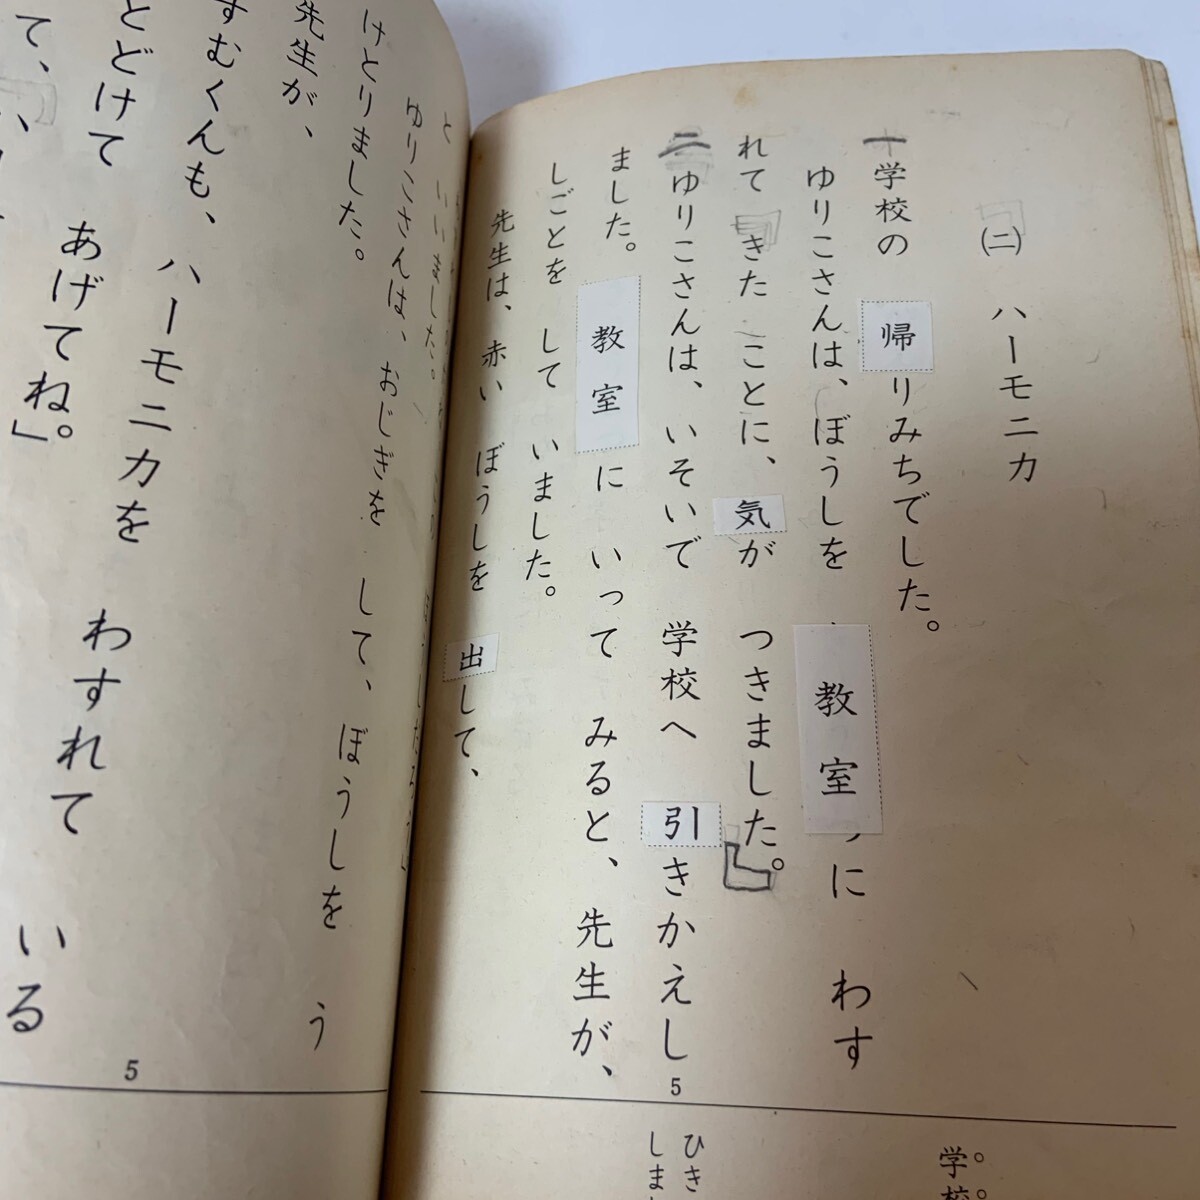 ㈡ ハーモニカ
一 学校の 帰りみちでした。
ゆりこさんは、ぼうしを 教室に わす
れて きた ことに、気が つきました。
二 ゆりこさんは、いそいで 学校へ 引きかえし
ました。教室に いって みると、先生が、
しごとを して いました。
先生は、赤い ぼうしを 出して、
5
学校
ひき
しま
と いいました。
ゆりこさんは、おじぎを して、ぼうしを う
けとりました。
先生が、
すむくんも、ハーモニカを わすれて いる
とどけて あげてね。」
て、
5